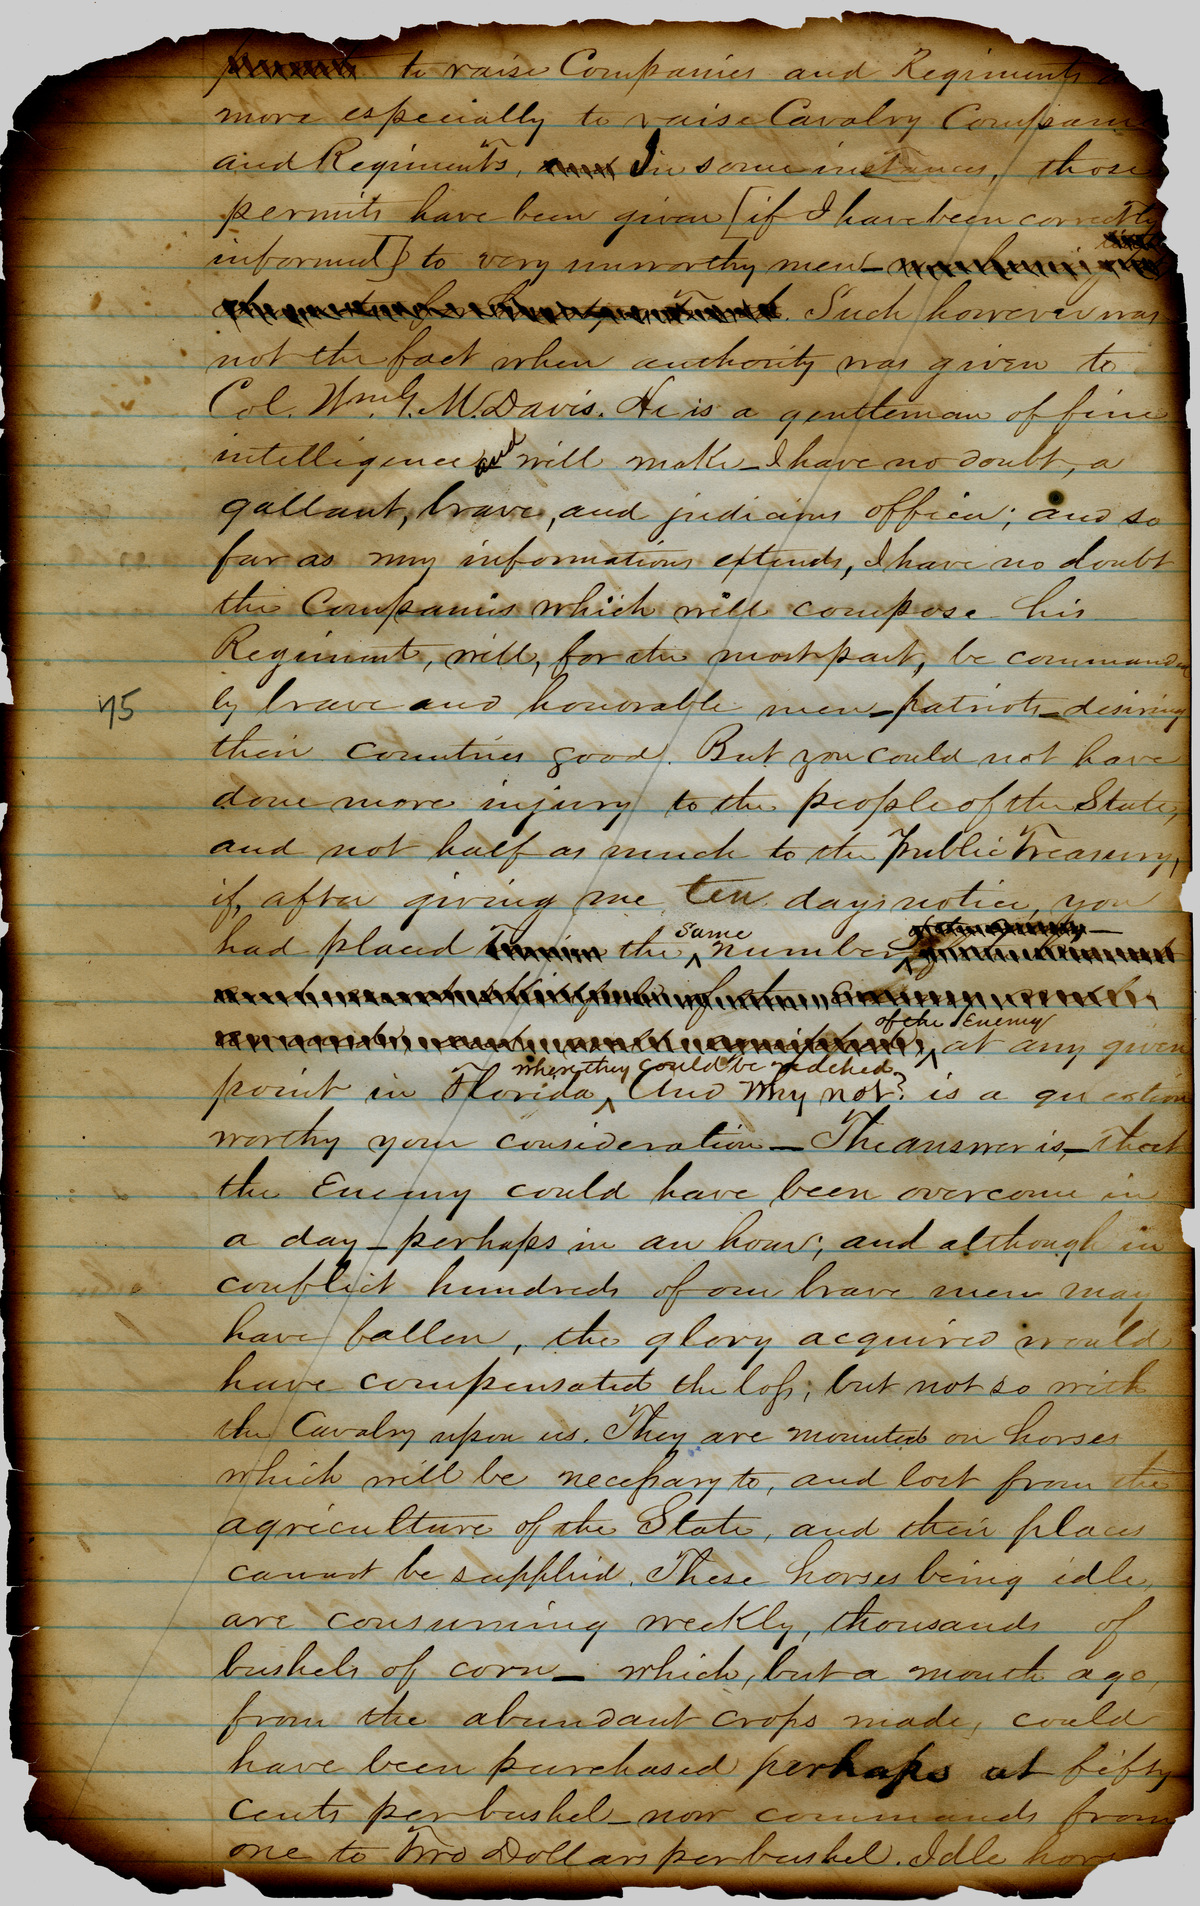 to raise Companies and Regiments
more especially to raise Cavalry Companies
and Regiments, In some instances, those
permits have been given [if I have been correctly
informed] to very unworthy men—
Such however was
not the fact when authority was given to
Col. Wm. G. M. Davis. He is a gentleman of fine
intelligence and will make—I have no doubt, a
gallant, brave, and judicious officer; and so
far as my information extends, I have no doubt
the Companies which will compose his
Regiment, will, for the most part, be commanded
75
by brave and honorable men—patriots—desiring
their countries good. But you could not have
done more injury to the people of the State,
and not half as much to the Public Treasury,
if, after giving me ten days notice, you
had placed the same number
of the Enemy at any given
point in Florida where they could be reached And why not? is a question
worthy your consideration—The answer is,—that
the Enemy could have been overcome in
a day—perhaps in an hour; and although in
conflict hundreds of our brave men may
have fallen, the glory acquired would
have compensated the loss; but not so with
the Cavalry upon us. They are mounted on horses
which will be necessary to, and lost from the
agriculture of the State, and their places
cannot be supplied. These horses being idle,
are consuming weekly, thousands of
bushels of corn—which, but a month ago,
from the abundant crops made, could
have been purchased perhaps at fifty
cents per bushel—now commands from
one to Two Dollars per bushel. Idle